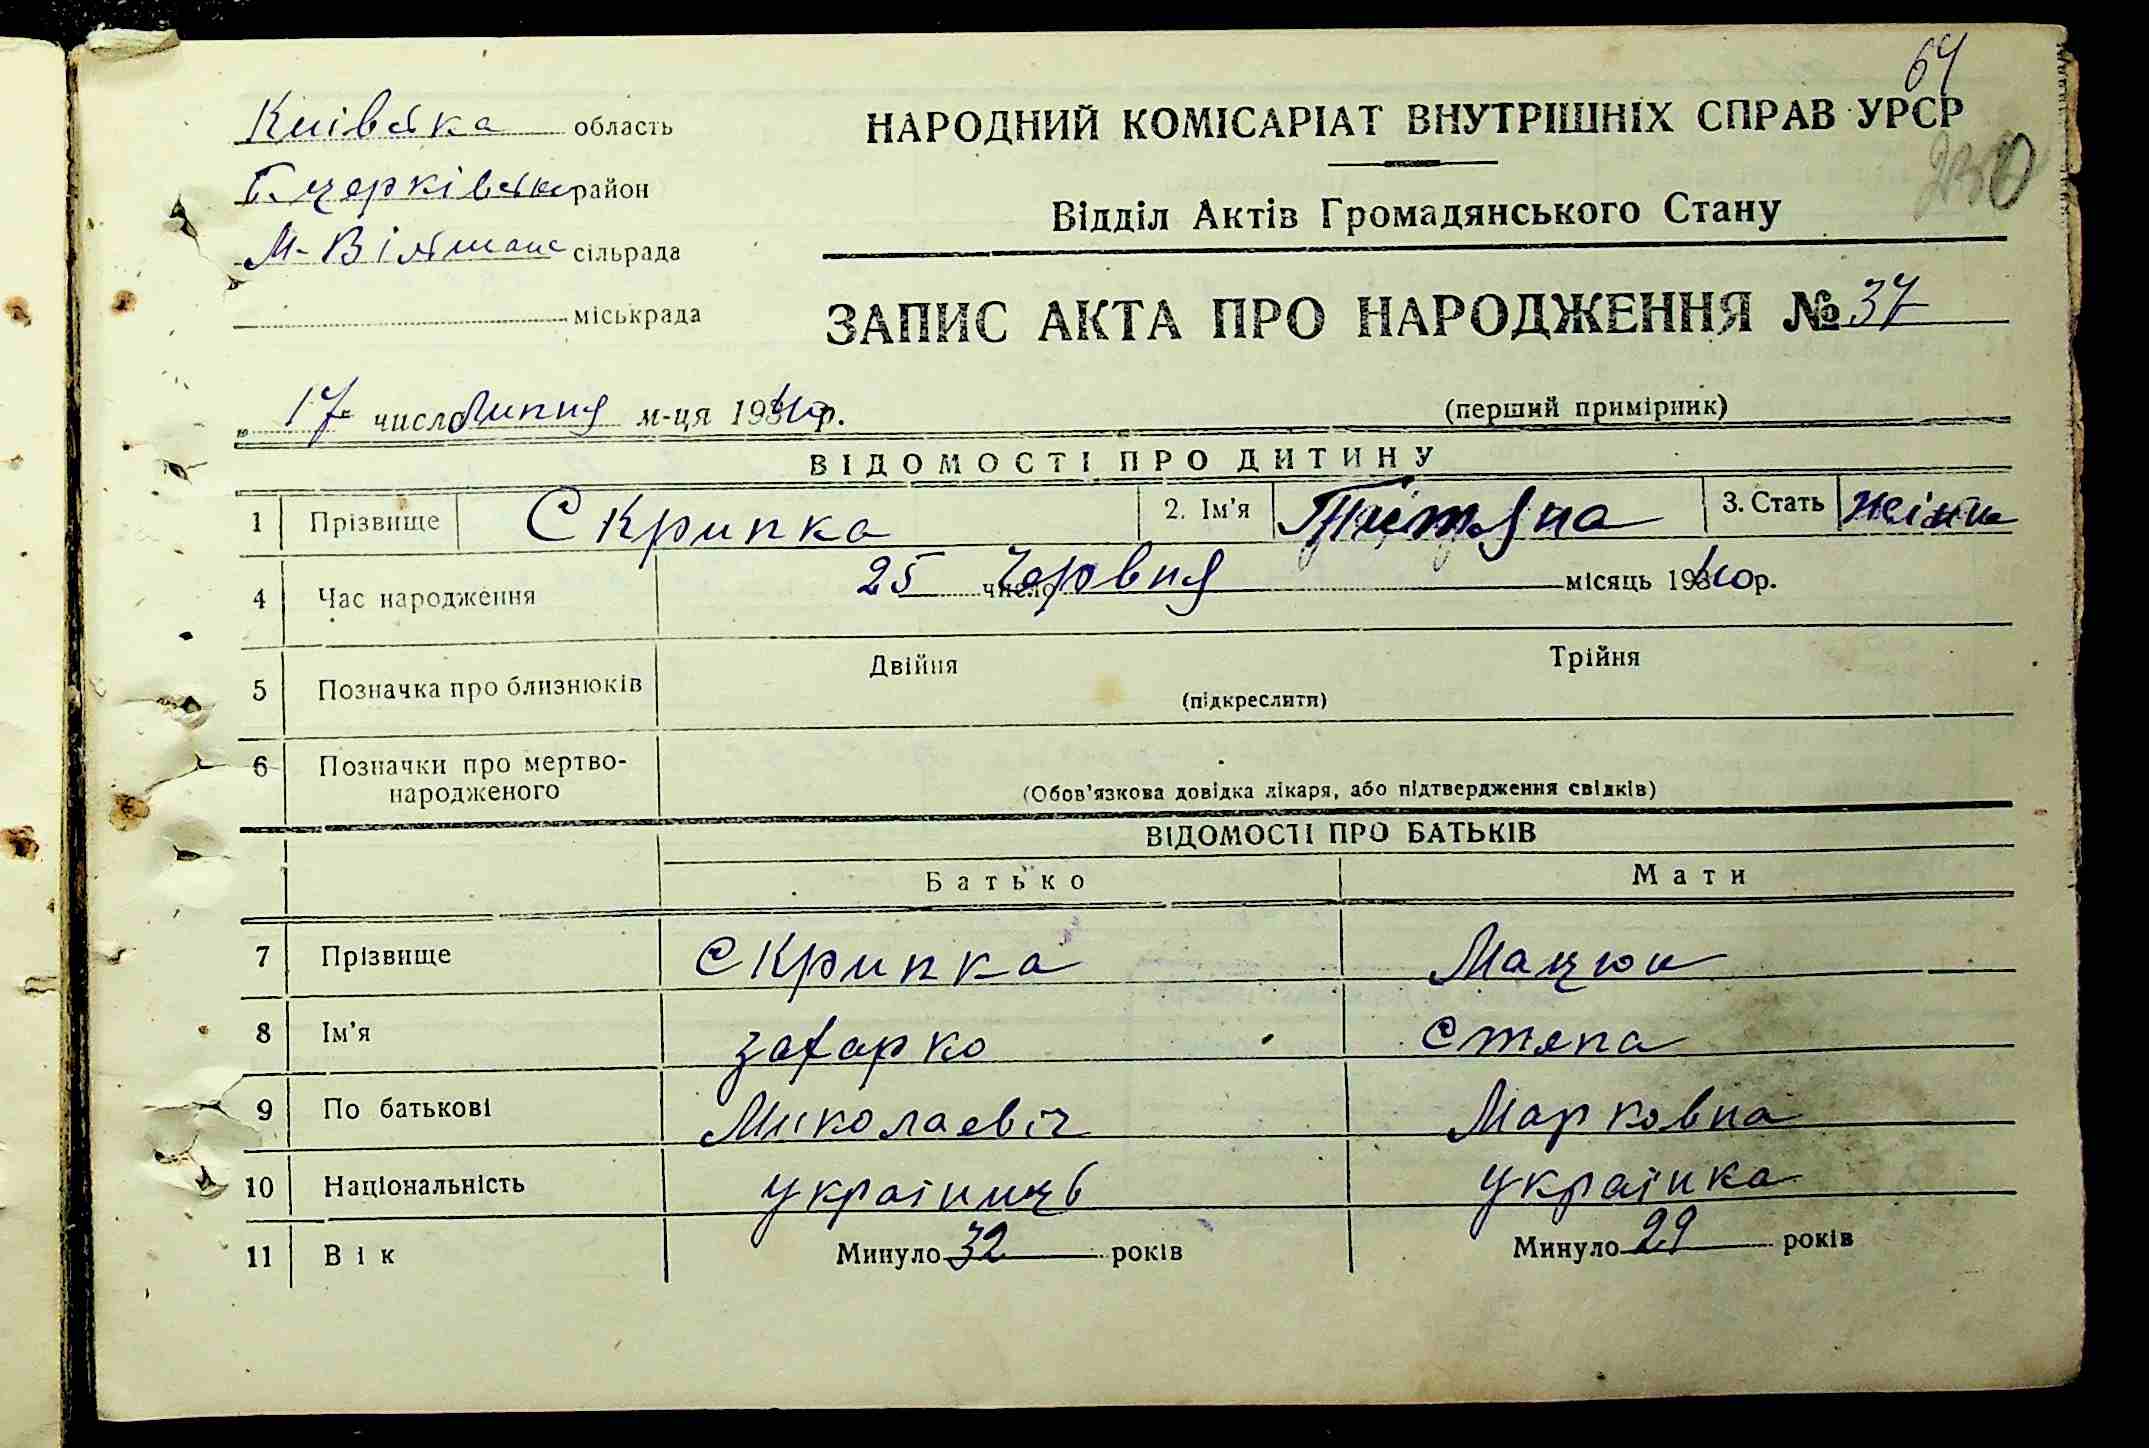 64
Київська область
НАРОДНИЙ КОМІСАРІАТ ВНУТРІШНІХ СПРАВ УРСР
230
Б. церківськ район
Відділ Актів Громадянського Стану
М-Вільшанс сільрада
міськрада
ЗАПИС АКТА ПРО НАРОДЖЕННЯ № 37
„ 17 число липня м-ця 1940 р.
(перший примірник)
ВІДОМОСТІ ПРО ДИТИНУ
1 Прізвище Скрипка 2. Ім'я Тетяна 3. Стать
4 Час народження 25 число Червня місяць 1940 р.
5 Позначка про близнюків Двійня Трійня
(підкреслити)
6 Позначки про мертвонародженого
(Обов'язкова довідка лікаря, або підтвердження свідків)
ВІДОМОСТІ ПРО БАТЬКІВ
Батько Мати
7 Прізвище Скрипка Мацюк
8 Ім'я захарко Степа
9 По батькові Миколаевіч Марковна
10 Національність українць українка
11 Вік Минуло 32 років Минуло 29 років